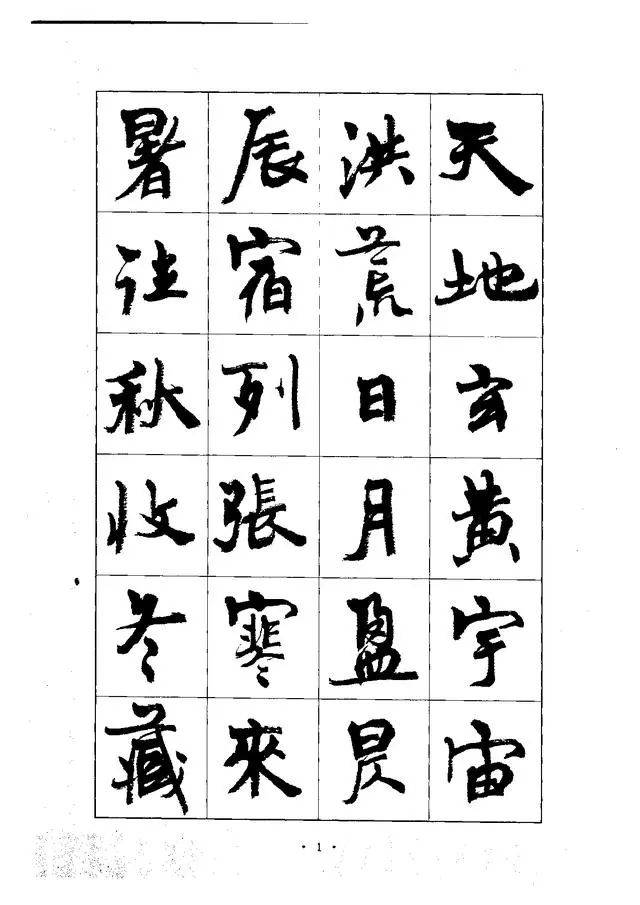 天地玄黃宇宙
洪荒日月盈昃
辰宿列張寒來
暑往秋收冬藏
· 1 ·